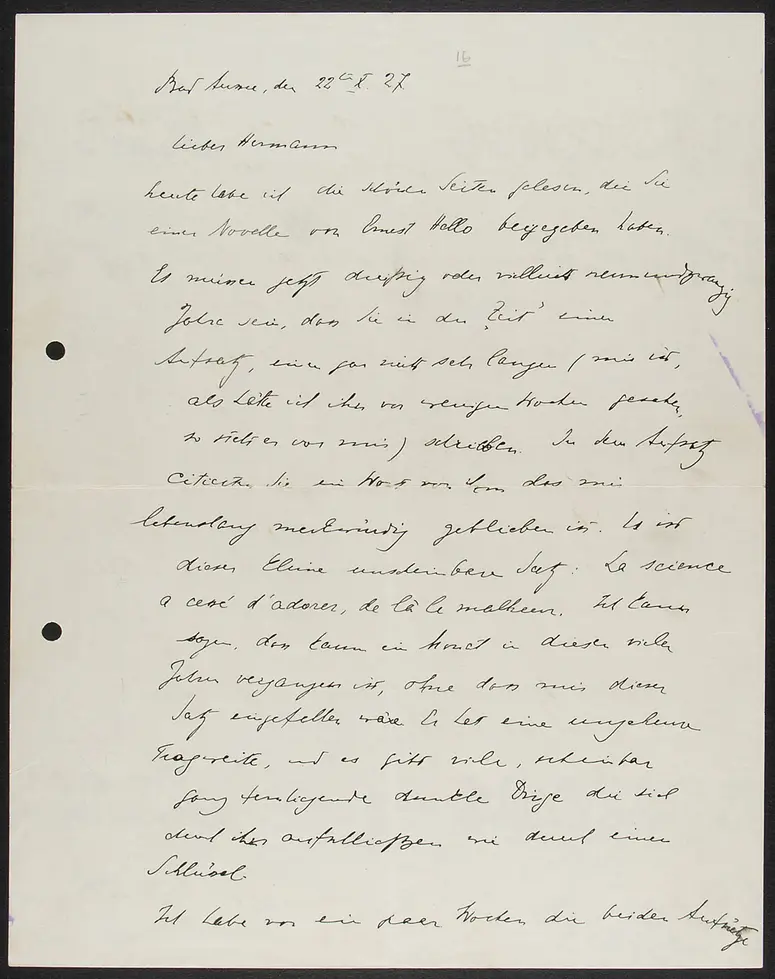 16
Bad Aussee, den 22ten X. 27.
Lieber Hermann
heute habe ich die schönen Seiten gelesen, die Sie
einer Novelle von Ernest Hello beigegeben haben.
Es müssen jetzt dreißig oder vielleicht neunundzwanzig
Jahre sein, dass Sie in der „Zeit" einen
Aufsatz, einen gar nicht sehr langen (mir ist,
als hätte ich ihn vor wenigen Wochen gesehen,
so steht er vor mir) schrieben. In dem Aufsatz
citierten Sie ein Wort von ihm das mir
lebenslang merkwürdig geblieben ist. Es ist
dieser kleine unscheinbare Satz: La science
a cessé d'adorer, de là le malheur. Ich kann
sagen, dass kaum ein Monat in diesen vielen
Jahren vergangen ist, ohne dass mir dieser
Satz eingefallen wäre. Er hat eine ungeheure
Tragweite, und es gibt viele, scheinbar
ganz fernliegende dunkle Dinge die sich
durch ihn aufschließen wie durch einen
Schlüssel.
Ich habe vor ein paar Wochen die beiden Aufsätze